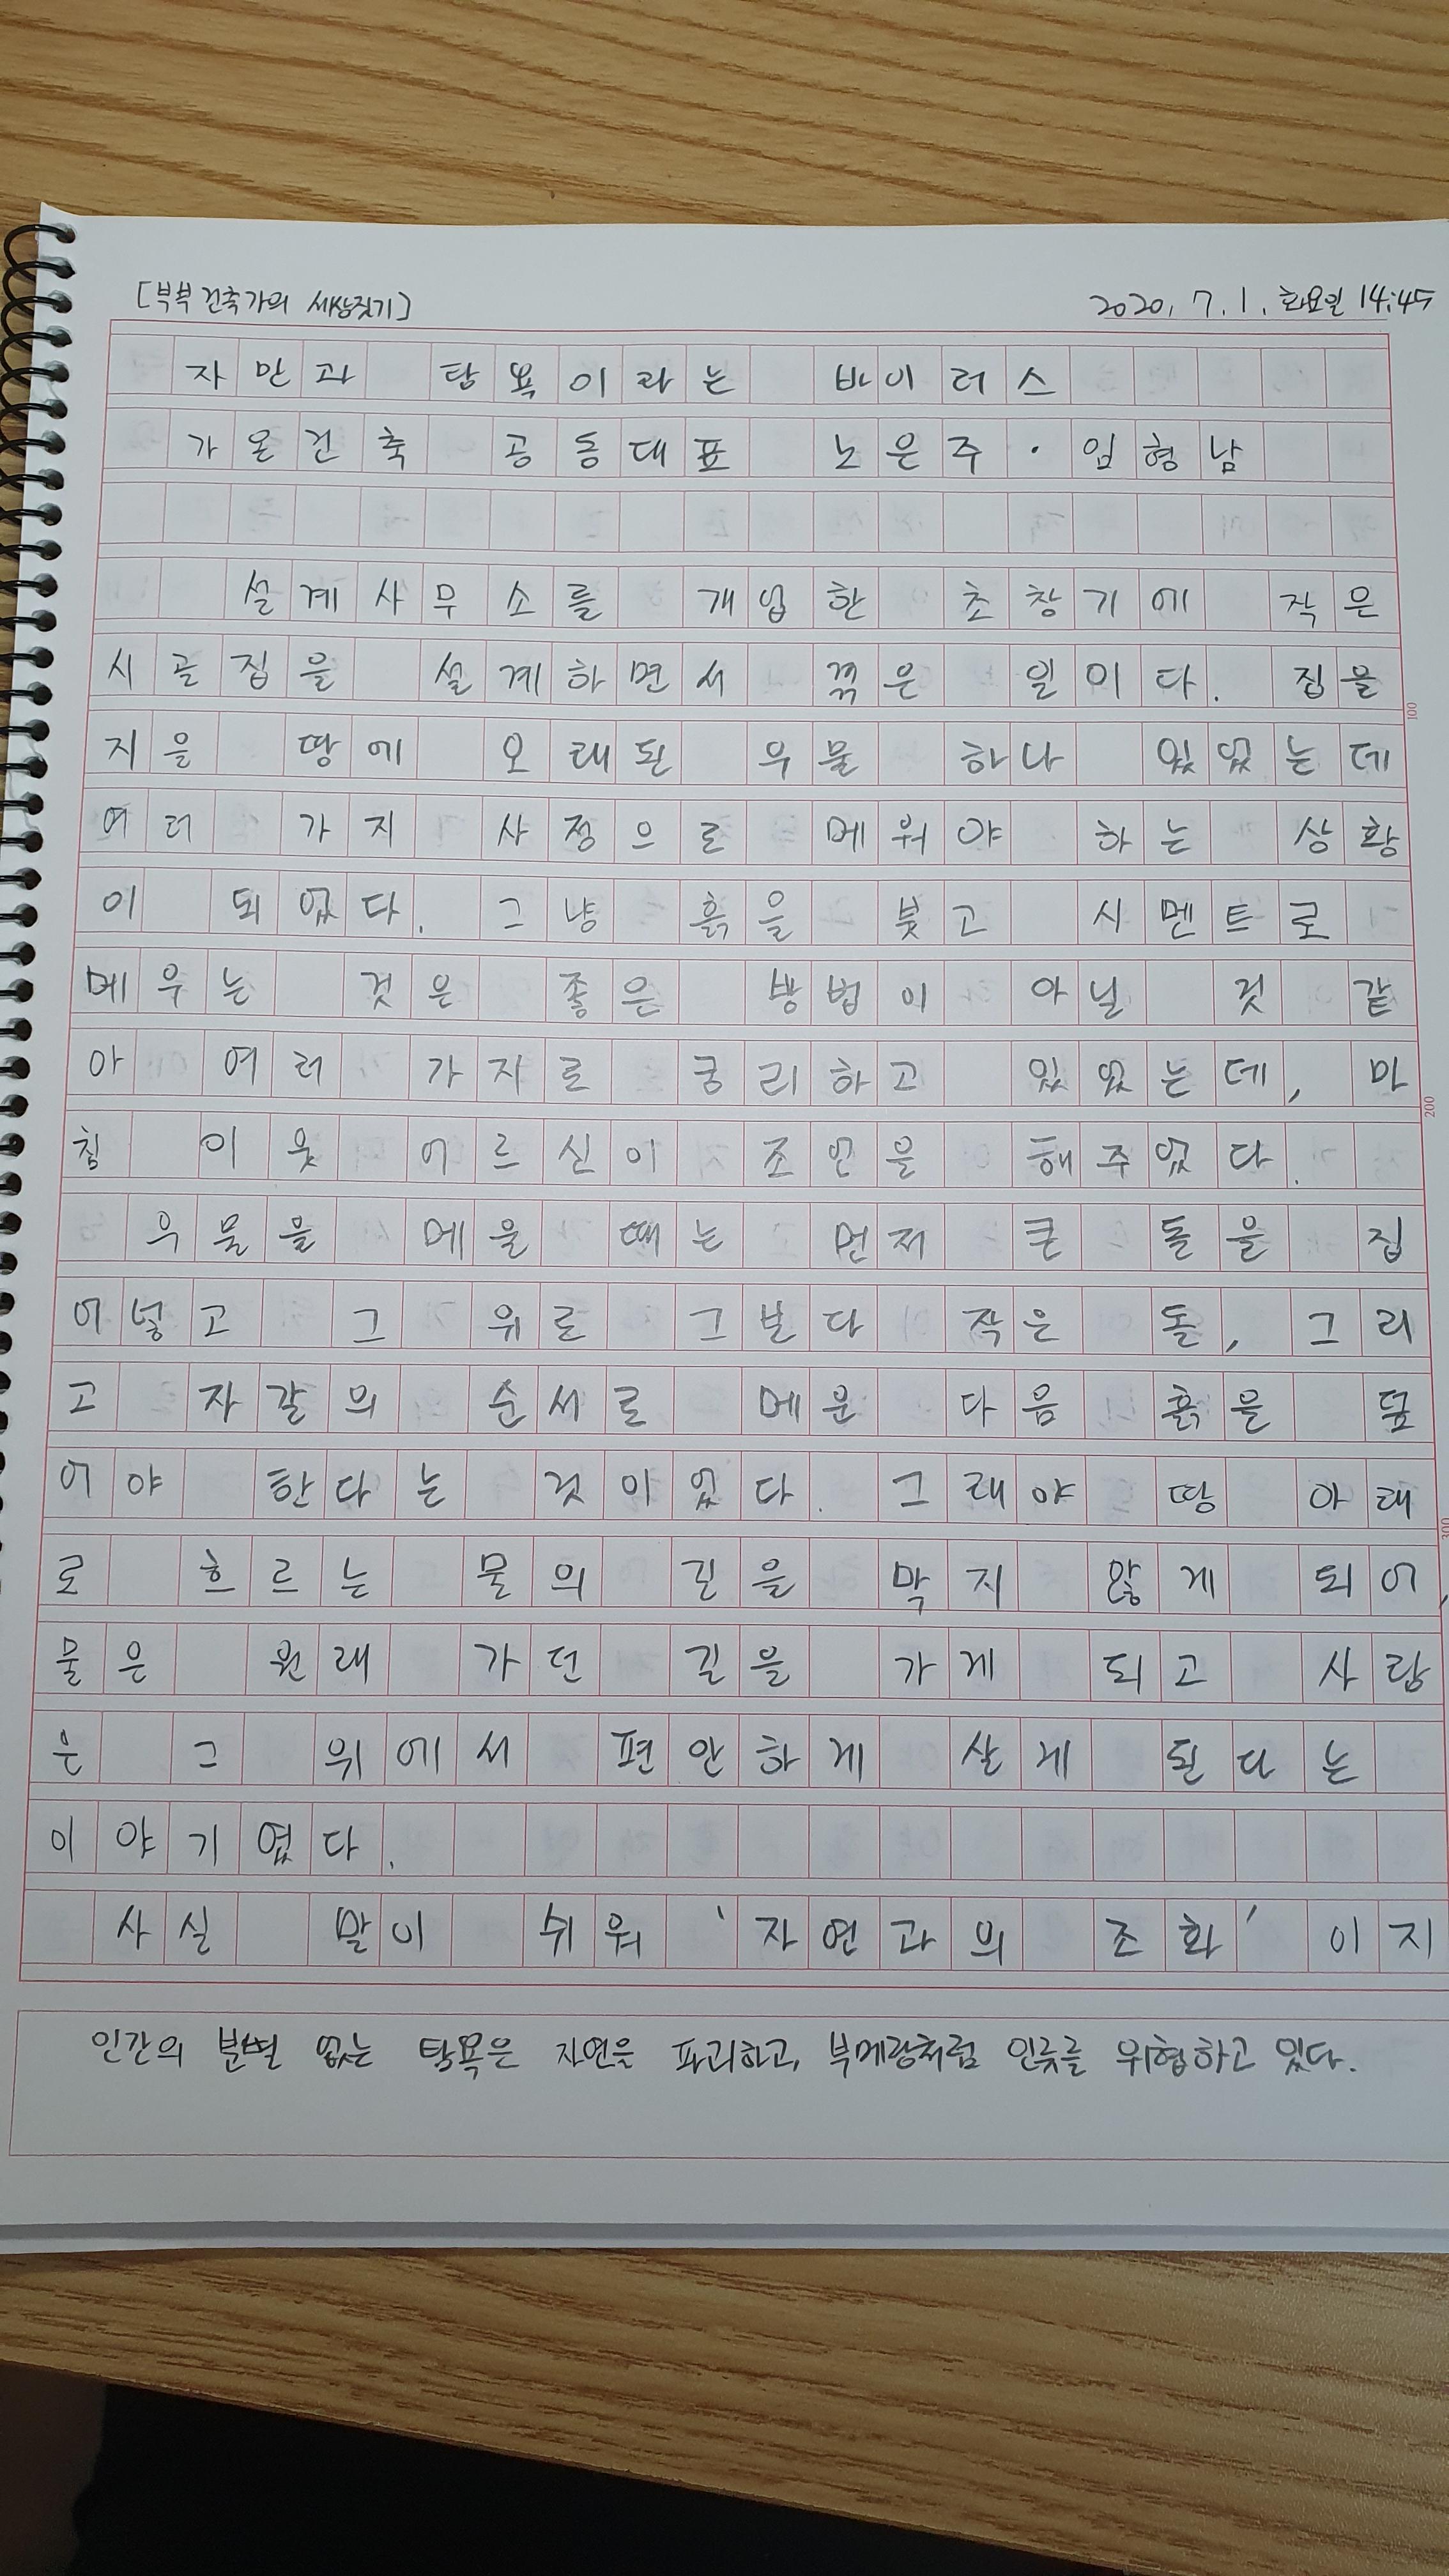 [부부 건축가의 세상짓기]
2020. 7. 1. 화요일 14:45
자만과 탐욕이라는 바이러스
가온건축 공동대표 노은주·임형남
설계사무소를 개업한 초창기에 작은
시골집을 설계하면서 겪은 일이다. 집을
지을 땅에 오래된 우물 하나 있었는데
여러 가지 사정으로 메워야 하는 상황
이 되었다. 그냥 흙을 붓고 시멘트로
메우는 것은 좋은 방법이 아닐 것 같
100
아 여러 가지로 궁리하고 있었는데, 마
침 이웃 어르신이 조언을 해주었다.
200
우물을 메울 때는 먼저 큰 돌을 집
어넣고 그 위로 그보다 작은 돌, 그리
고 자갈의 순서로 메운 다음 흙을 덮
어야 한다는 것이었다. 그래야 땅 아래
300
로 흐르는 물의 길을 막지 않게 되어,
물은 원래 가던 길을 가게 되고 사람
은 그 위에서 편안하게 살게 된다는
이야기였다.
사실 말이 쉬워 '자연과의 조화'이지
인간의 분별 없는 탐욕은 자연을 파괴하고, 부메랑처럼 인류를 위협하고 있다.